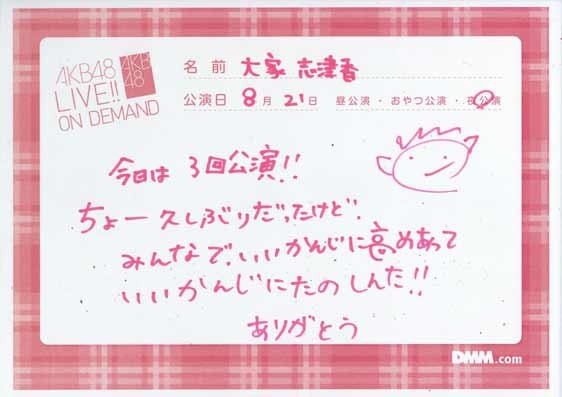 AKB48
LIVE!!
ON DEMAND
AKB
48
名前 大家 志津香
公演日 8月21日 昼公演・おやつ公演・夜公演
今日は 3回公演!!
ちょー久しぶりだったけど、
みんなで、いいかんじに高めあって
いいかんじにたのしんだ!!
ありがとう
DMM.com